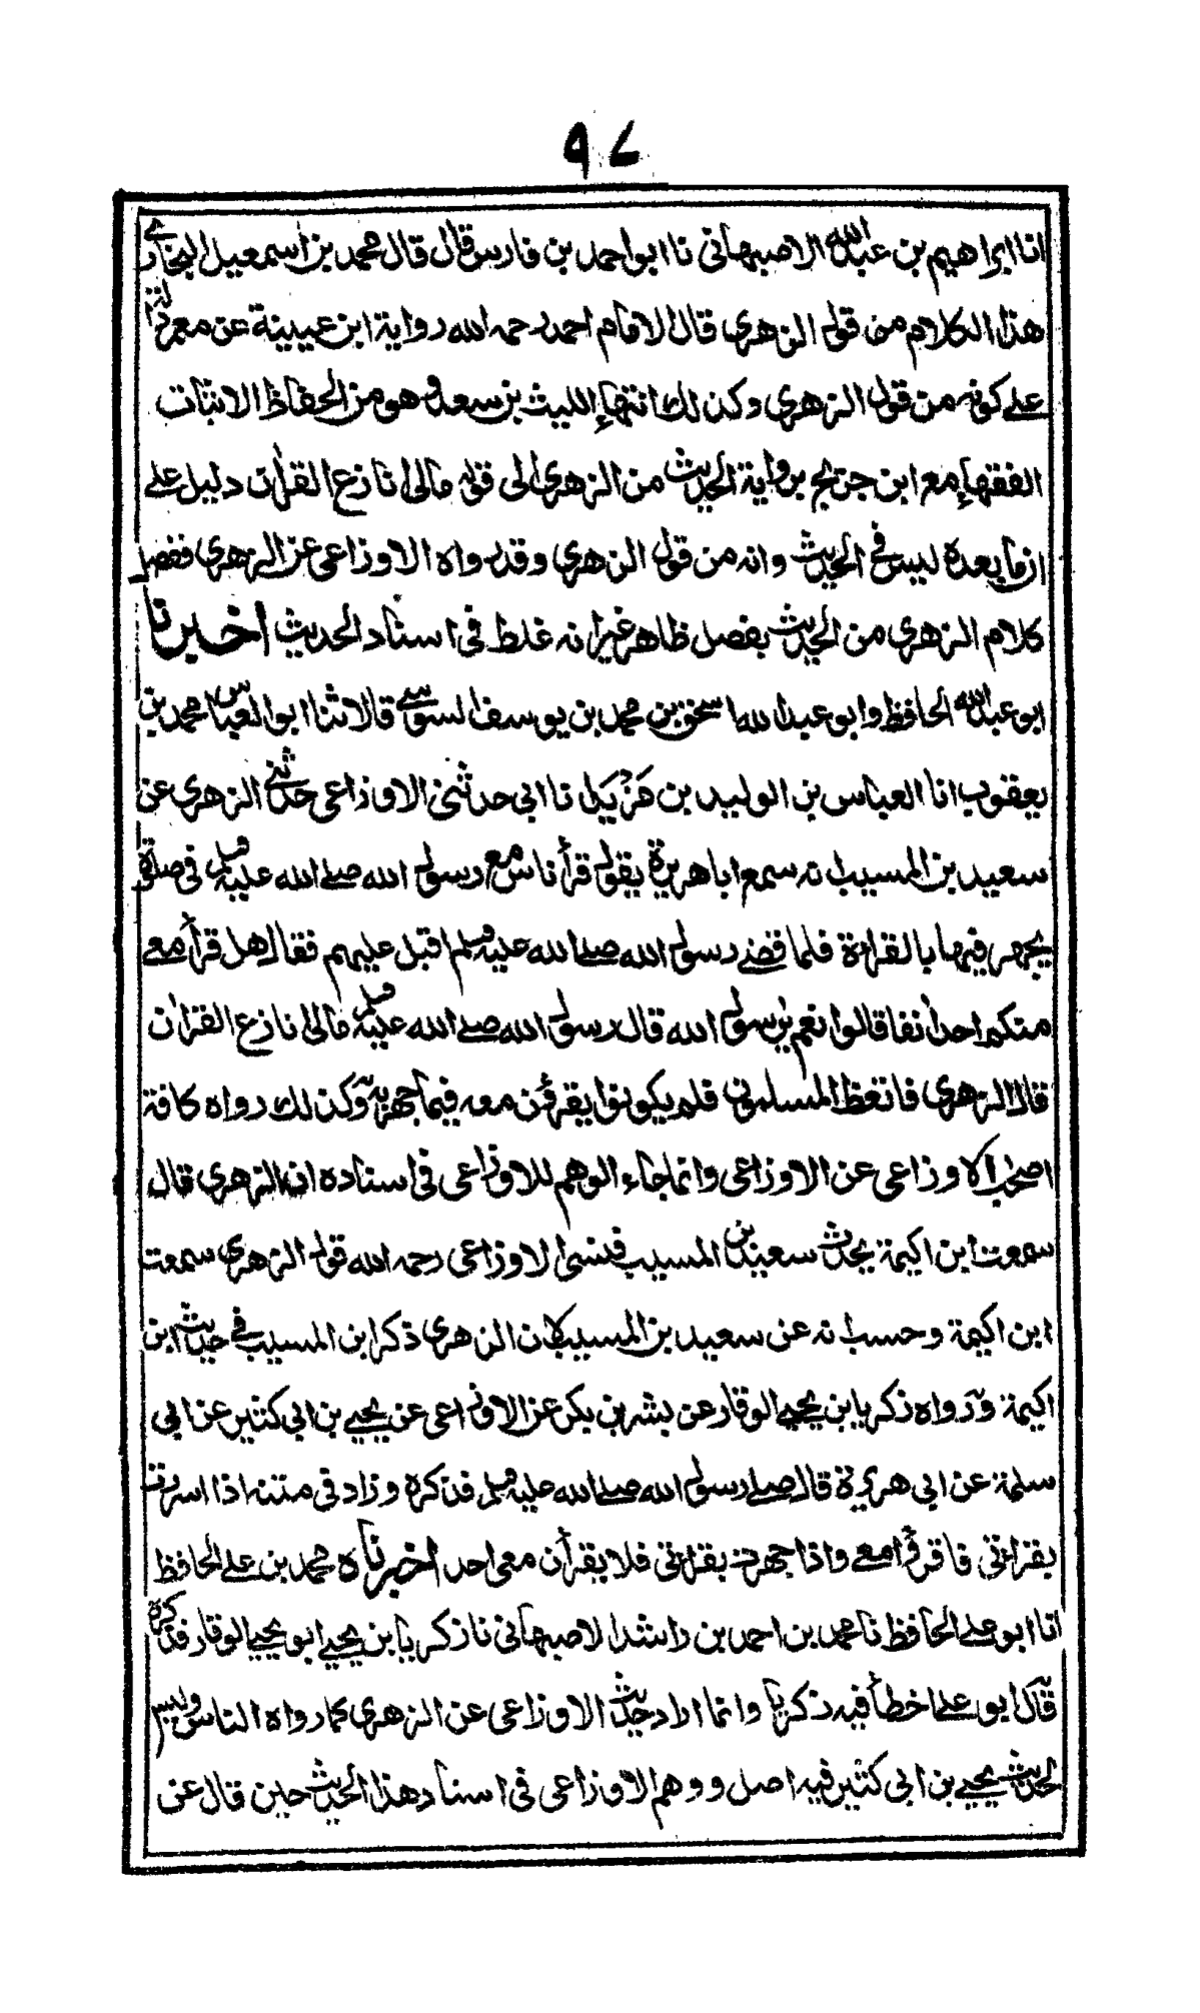 ٩٧
انا ابراهيم بن عبد الله الاصبهاني نا ابو احمد بن فارس قال قال محمد بن اسمعيل البخاري
هذا الكلام من قول الزهري قال الامام احمد رحمه الله رواية ابن عيينة عن معمر دالة
على كونه من قول الزهري وكذلك انتهاء الليث بن سعد وهو من الحفاظ الاثبات
الفقهاء مع ابن جريج برواية الحديث من الزهري الى قوله مالى انازع القرآن دليل على
ان ما بعده ليس في الحديث وانه من قول الزهري وقد رواه الاوزاعي عن الزهري ففصل
كلام الزهري من الحديث بفصل ظاهر غير انه غلط في اسناد الحديث اخبرنا
ابو عبد الله الحافظ وابو عبد الله اسحق بن محمد بن يوسف السوسي قالا ثنا ابو العباس محمد بن
يعقوب انا العباس بن الوليد بن مزيد نا ابي حدثني الاوزاعي حدثني الزهري عن
سعيد بن المسيب انه سمع ابا هريرة يقول قرأ ناس مع رسول الله صلى الله عليه وسلم في صلوة
يجهر فيها بالقراءة فلما قضى رسول الله صلى الله عليه وسلم اقبل عليهم فقال هل قرأ معى
منكم احد انفا قالوا نعم يرسول الله قال رسول الله صلى الله عليه وسلم مالى انازع القرآن
قال الزهري فاتعظ المسلمون فلم يكونوا يقرؤن معه فيما جهر به وكذلك رواه كافة
اصحاب الاوزاعي عن الاوزاعي وانما جاء الوهم للاوزاعي في اسناده ان الزهري قال
سمعت ابن اكيمة يحدث سعيد بن المسيب فنسى الاوزاعي رحمه الله قول الزهري سمعت
ابن اكيمة وحسب انه عن سعيد بن المسيب لان الزهري ذكر ابن المسيب في حديث ابن
اكيمة ورواه زكريا بن يحيى الوقار عن بشر بن بكر عن الاوزاعي عن يحيى بن ابي كثير عن ابي
سلمة عن ابي هريرة قال صلى رسول الله صلى الله عليه وسلم فذكره وزاد في متنه اذا اسررت
بقراءتي فاقرؤا معى واذا جهرت بقراءتي فلا يقرأن معى احد اخبرناه محمد بن على الحافظ
انا ابو على الحافظ نا محمد بن احمد بن راشد الاصبهاني نا زكريا بن يحيى ابو يحيى الوقار فذكره
قال ابو على اخطأ فيه زكريا وانما اراد حديث الاوزاعي عن الزهري كما رواه الناس وليس
لحديث يحيى بن ابي كثير فيه اصل ووهم الاوزاعي في اسناد هذا الحديث حين قال عن